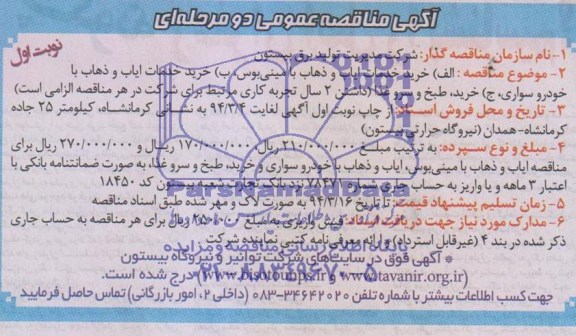 آگهی مناقصه عمومی دو مرحله‌ای
نوبت اول
۱- نام سازمان مناقصه گذار: شرکت مدیریت تولید برق بیستون
۲- موضوع مناقصه: الف) خرید خدمات ایاب و ذهاب با مینی‌بوس ب) خرید خدمات ایاب و ذهاب با
خودرو سواری، ج) خرید، طبخ و سرو غذا (داشتن ۲ سال تجربه کاری مرتبط برای شرکت در هر مناقصه الزامی است)
۳- تاریخ و محل فروش اسناد: از چاپ نوبت اول آگهی لغایت ۹۴/۳/۴ به نشانی کرمانشاه، کیلومتر ۲۵ جاده
کرمانشاه- همدان (نیروگاه حرارتی بیستون)
۴- مبلغ و نوع سپرده: به ترتیب مبلغ ۲۱۰/۰۰۰/۰۰۰ ریال، ۱۷۰/۰۰۰/۰۰۰ ریال و ۲۷۰/۰۰۰/۰۰۰ ریال برای
مناقصه ایاب و ذهاب با مینی‌بوس، ایاب و ذهاب با خودرو سواری و خرید، طبخ و سرو غذا، به صورت ضمانتنامه بانکی با
اعتبار ۳ ماهه و یا واریز به حساب جاری بیستون کد ۱۸۴۵۰
۵- زمان تسلیم پیشنهاد قیمت: تا تاریخ ۹۴/۳/۱۶ به صورت لاک و مهر شده طبق اسناد مناقصه
۶- مدارک مورد نیاز جهت دریافت اسناد: فیش واریزی به مبلغ ریال برای هر مناقصه به حساب جاری
ذکر شده در بند ۴ (غیرقابل استرداد) و ارائه معرفی‌نامه کتبی نماینده شرکت
* آگهی فوق در سایت‌های شرکت توانیر و نیروگاه بیستون
(www.tavanir.org.ir و www.bisotounps.ir) درج شده است.
جهت کسب اطلاعات بیشتر با شماره تلفن ۳۴۶۴۲۰۲۰-۰۸۳ (داخلی ۲، امور بازرگانی) تماس حاصل فرمایید
ParsNamadData
پایگاه اطلاع رسانی مناقصه و مزایده
۰۲۱-۸۸۳۴۹۶۷۰-۵